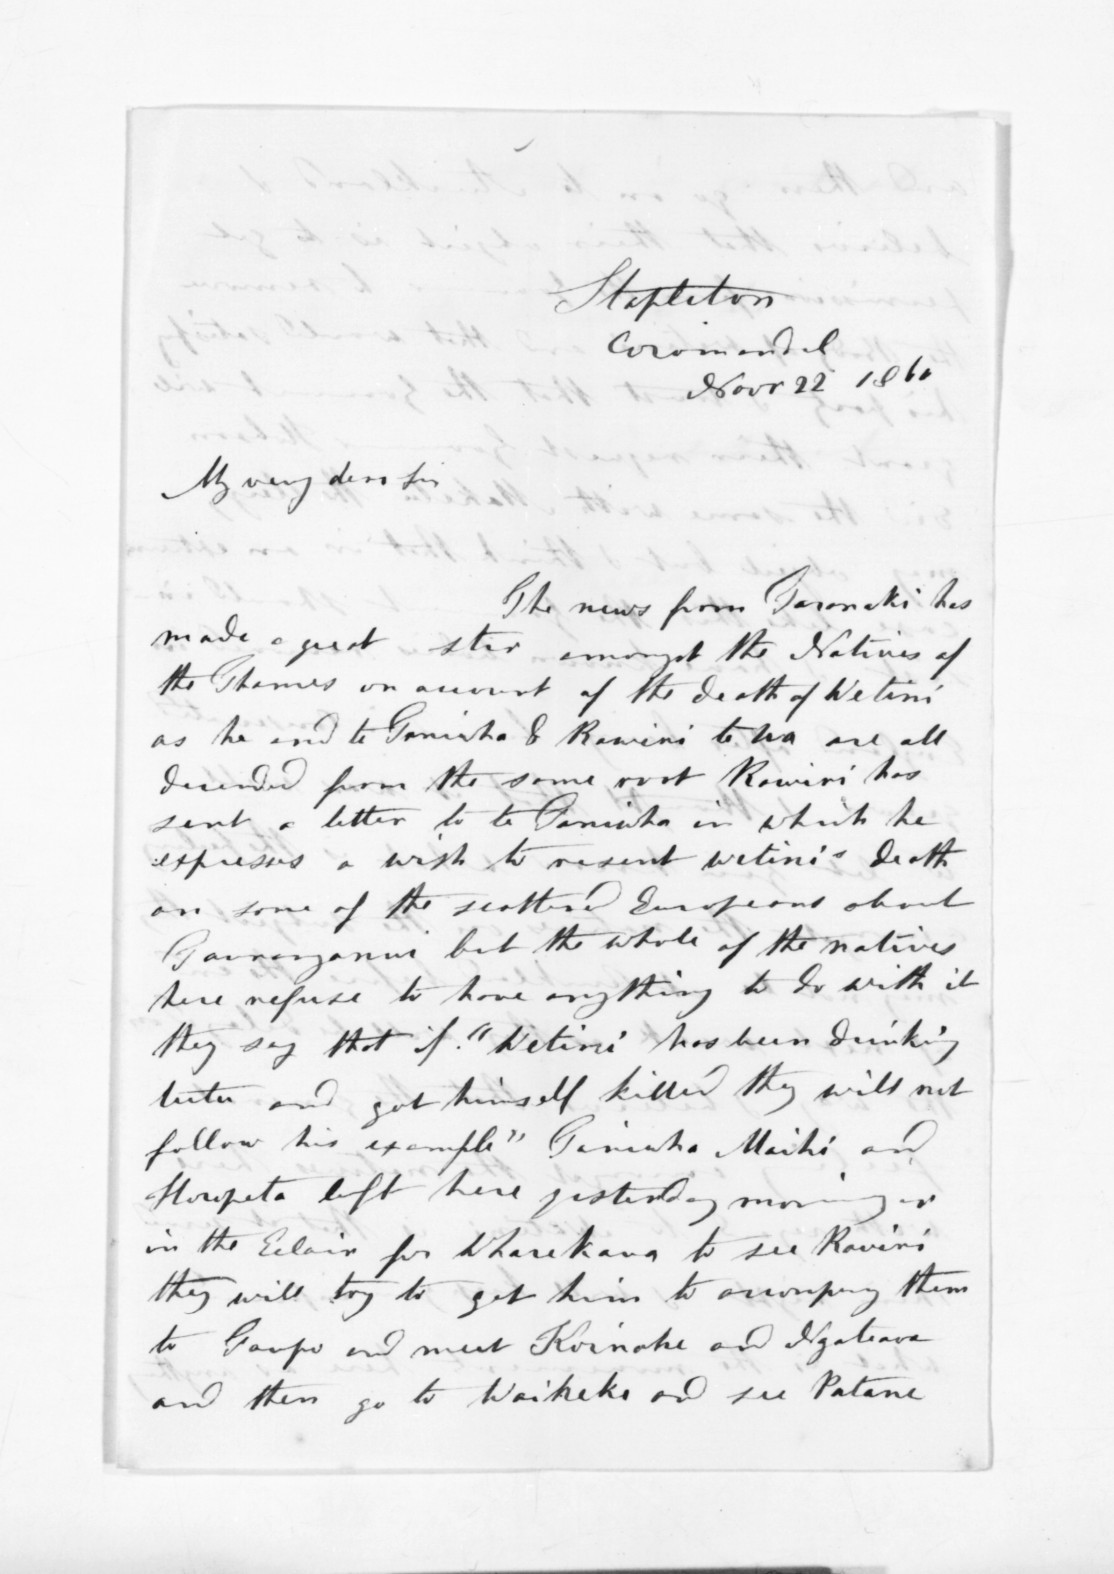 Stapleton
Coromandel
Novr 22 1860
My very dear Sir
The news from Taranaki has
made a great stir amongst the Natives of
the Thames on account of the death of Wetini
as he and te Taniwha & Rawiri te ua are all
decended from the same root Rawiri has
sent a letter to te Taniwha in which he
expresses a wish to resent wetini's death
on some of the scattered Europeans about
Tauranganui but the whole of the natives
here refuse to have anything to do with it
they say that if "Wetini has been drinking
tutu and got himself killed they will not
follow his example" Taniwha Maihi and
Horopeta left here yesterday morning
in the Eclair for Wharekawa to see Rawiri
they will try to get him to accompany them
to Taupo and meet and
and then go to and see Patane